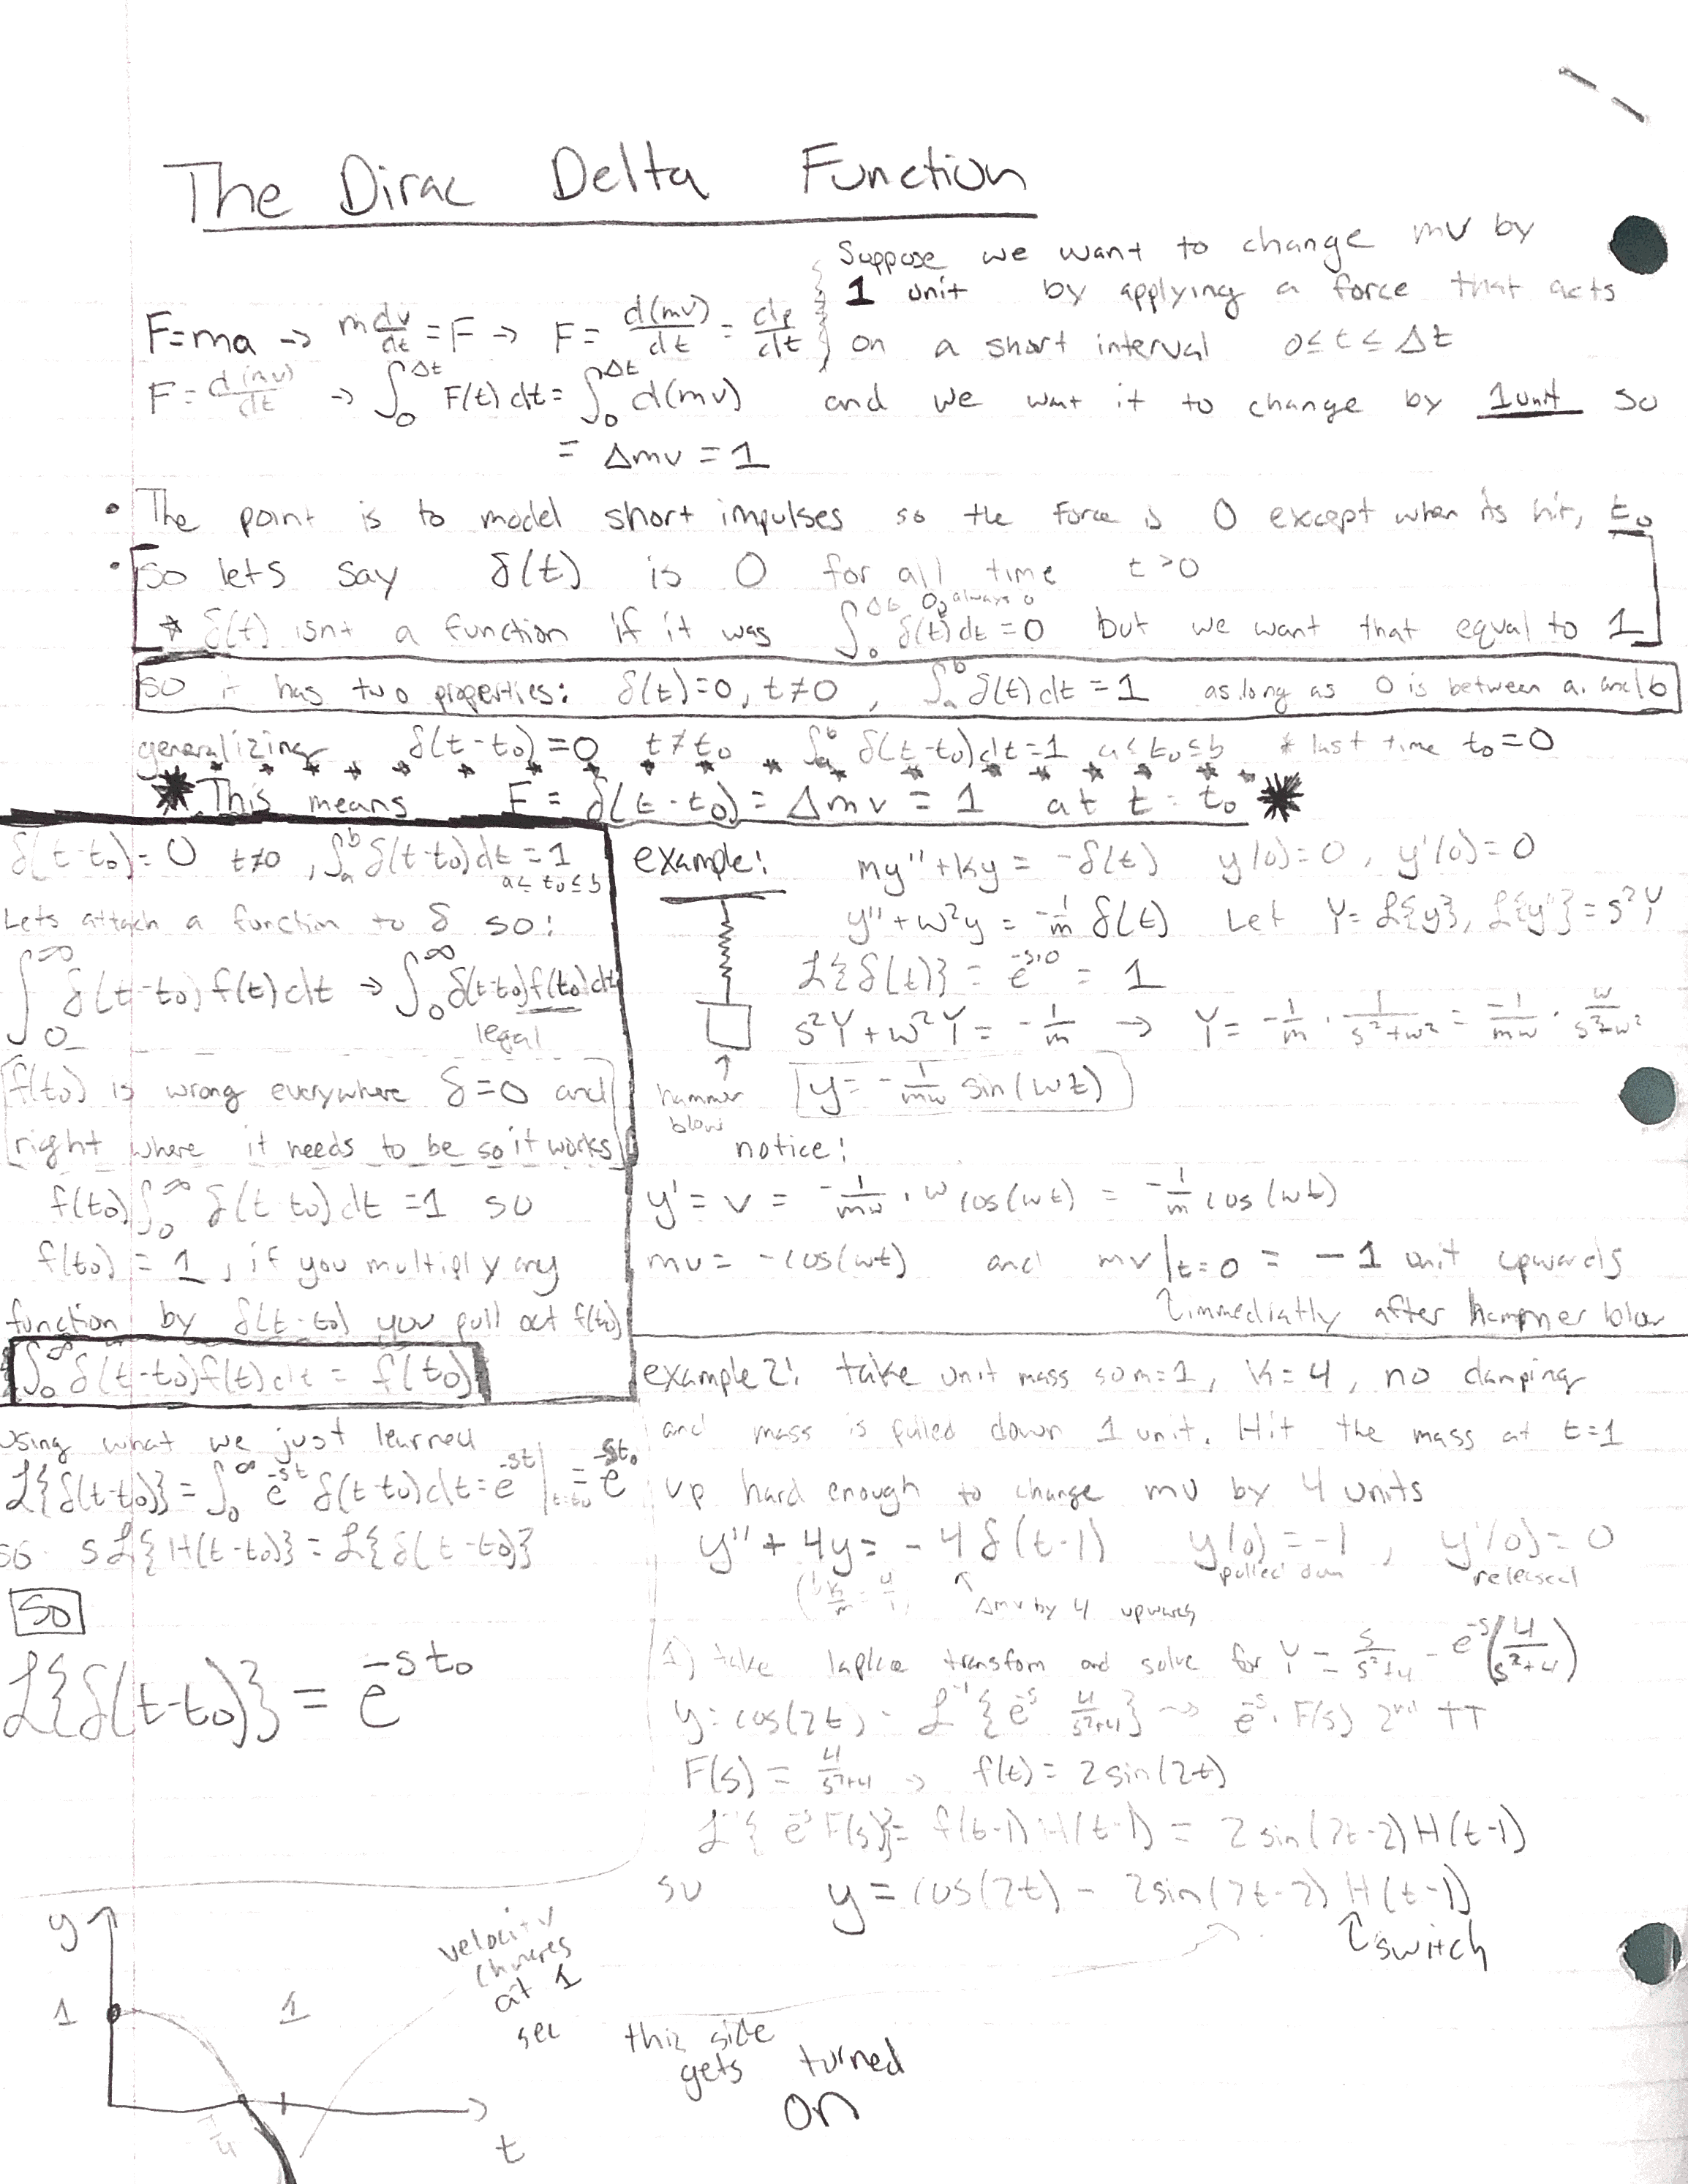 The Dirac Delta Function
Suppose we want to change mv by
1 unit by applying a force that acts
F=ma → m dv/dt = F → F = d(mv)/dt = dp/dt on a short interval 0≤t≤Δt
F = d(mv)/dt → ∫₀^Δt F(t)dt = ∫₀^Δt d(mv) and we want it to change by 1 unit so
= Δmv = 1
• The point is to model short impulses so the force is 0 except when its hit, t₀
• So lets say δ(t) is 0 for all time t>0
0, always 0
* δ(t) isnt a function if it was ∫₀^Δt δ(t)dt = 0 but we want that equal to 1
So it has two properties: δ(t)=0, t≠0, ∫ₐᵇ δ(t)dt = 1 as long as 0 is between a and b
generalizing δ(t-t₀)=0 t≠t₀ ∫ₐᵇ δ(t-t₀)dt=1 a≤t₀≤b * last time t₀=0
* This means F = δ(t-t₀) = Δmv = 1 at t=t₀ *
δ(t-t₀)=0 t≠0, ∫ₐᵇ δ(t-t₀)dt = 1
a≤t₀≤b
Lets attach a function to δ so:
∫₀^∞ δ(t-t₀)f(t)dt → ∫₀^∞ δ(t-t₀)f(t₀)dt
legal
f(t₀) is wrong everywhere δ=0 and
right where it needs to be so it works
f(t₀)∫₀^∞ δ(t-t₀)dt = 1 so
f(t₀) = 1, if you multiply any
function by δ(t-t₀) you pull out f(t₀)
∫₀^∞ δ(t-t₀)f(t)dt = f(t₀)
using what we just learned
ℒ{δ(t-t₀)} = ∫₀^∞ e^-st δ(t-t₀)dt = e^-st |t=t₀ = e^-st₀
so sℒ{H(t-t₀)} = ℒ{δ(t-t₀)}
So
ℒ{δ(t-t₀)} = e^-st₀
example: my''+ky = -δ(t) y(0)=0, y'(0)=0
y''+w²y = -1/m δ(t) Let Y=ℒ{y}, ℒ{y''}=s²Y
ℒ{δ(t)} = e^-s·0 = 1
s²Y+w²Y = -1/m → Y = -1/m · 1/(s²+w²) = -1/mw · w/(s²+w²)
hammer
blow
y = -1/mw sin(wt)
notice:
y' = v = -1/mw · w cos(wt) = -1/m cos(wt)
mv = -cos(wt) and mv|t=0 = -1 unit upwards
↑immediatly after hammer blow
example 2: take unit mass so m=1, k=4, no damping
and mass is pulled down 1 unit. Hit the mass at t=1
up hard enough to change mv by 4 units
y''+4y = -4δ(t-1) y(0)=-1, y'(0)=0
pulled down released
Δmv by 4 upwards
1) take laplace transform and solve for Y = s/(s²+4) - e^-s(4/(s²+4))
y = cos(2t) - ℒ⁻¹{e^-s 4/(s²+4)} → e^-s · F(s) 2nd TT
F(s) = 4/(s²+4) → f(t) = 2sin(2t)
ℒ⁻¹{e^-s F(s)} = f(t-1)H(t-1) = 2sin(2t-2)H(t-1)
so y = cos(2t) - 2sin(2t-2)H(t-1)
↑switch
y
velocity
changes
at 1
sec
1
1
π/4
t
this side
gets turned
on